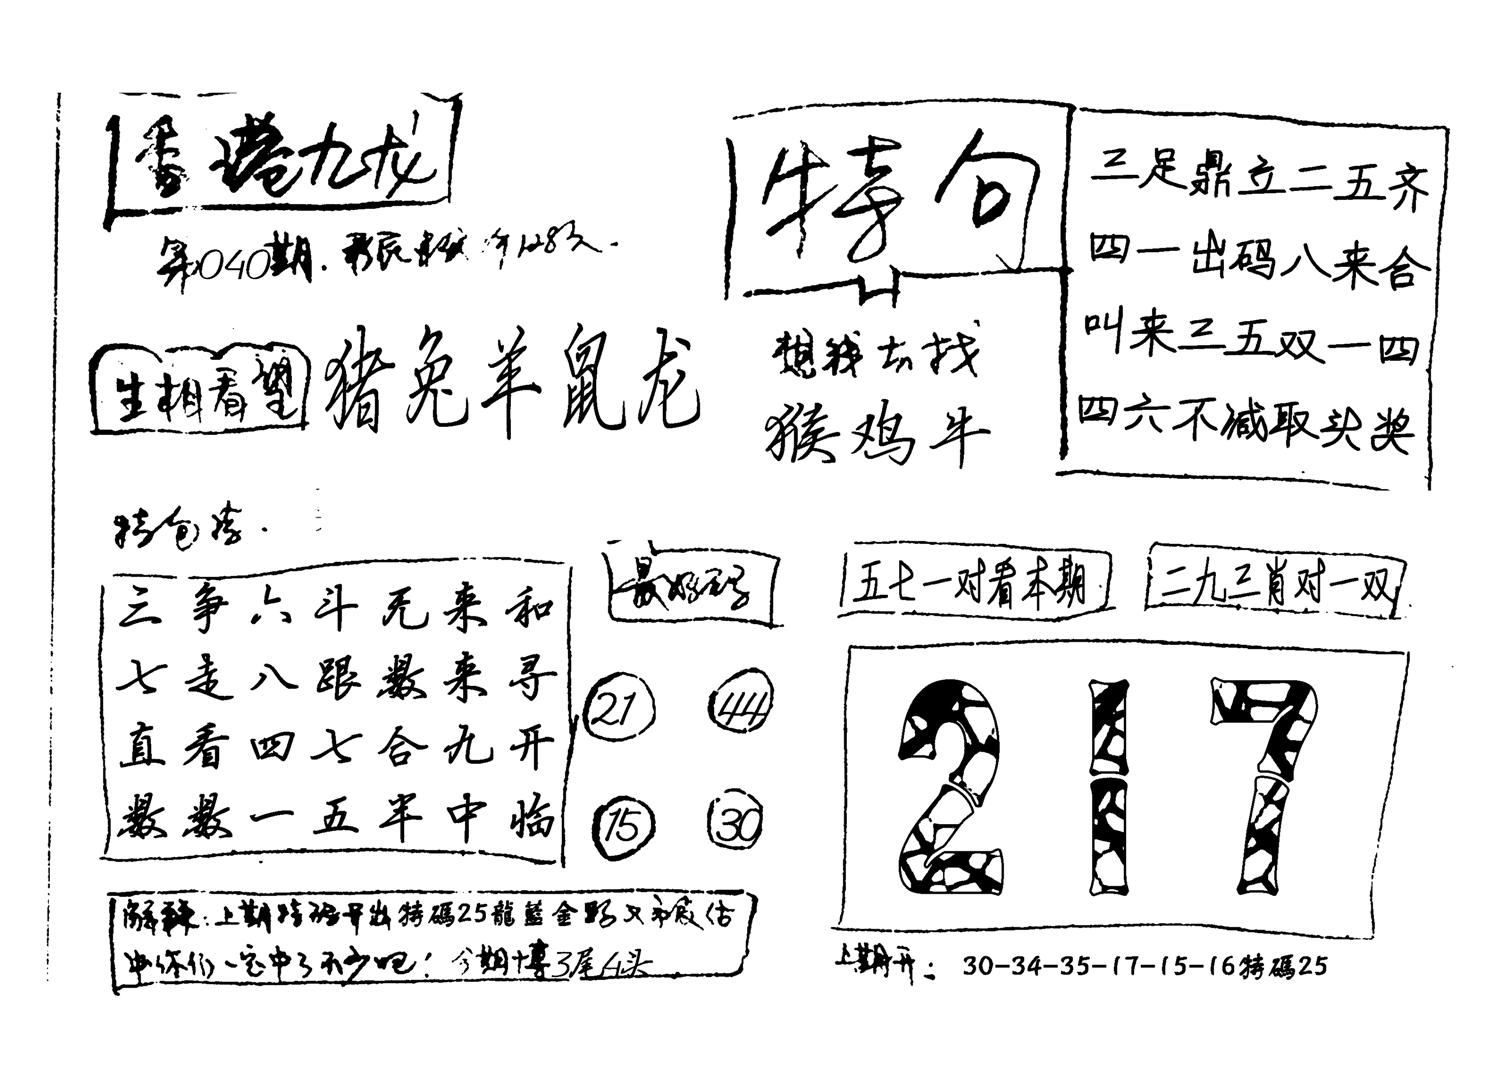 香港九龙
第040期.
生相看望
猪兔羊鼠龙
特句
三足鼎立二五齐
四一出码八来合
叫来三五双一四
四六不减取头奖
想钱去找
猴鸡牛
三争六斗无来和
七走八跟数来寻
直看四七合九开
数数一五半中临
最好码
21 44
15 30
五七一对看本期
二九三肖对一双
217
解释:上期特码开出特碼25龍藍金
你们一定中了不少吧!今期博3尾4头
上期开: 30-34-35-17-15-16特碼25